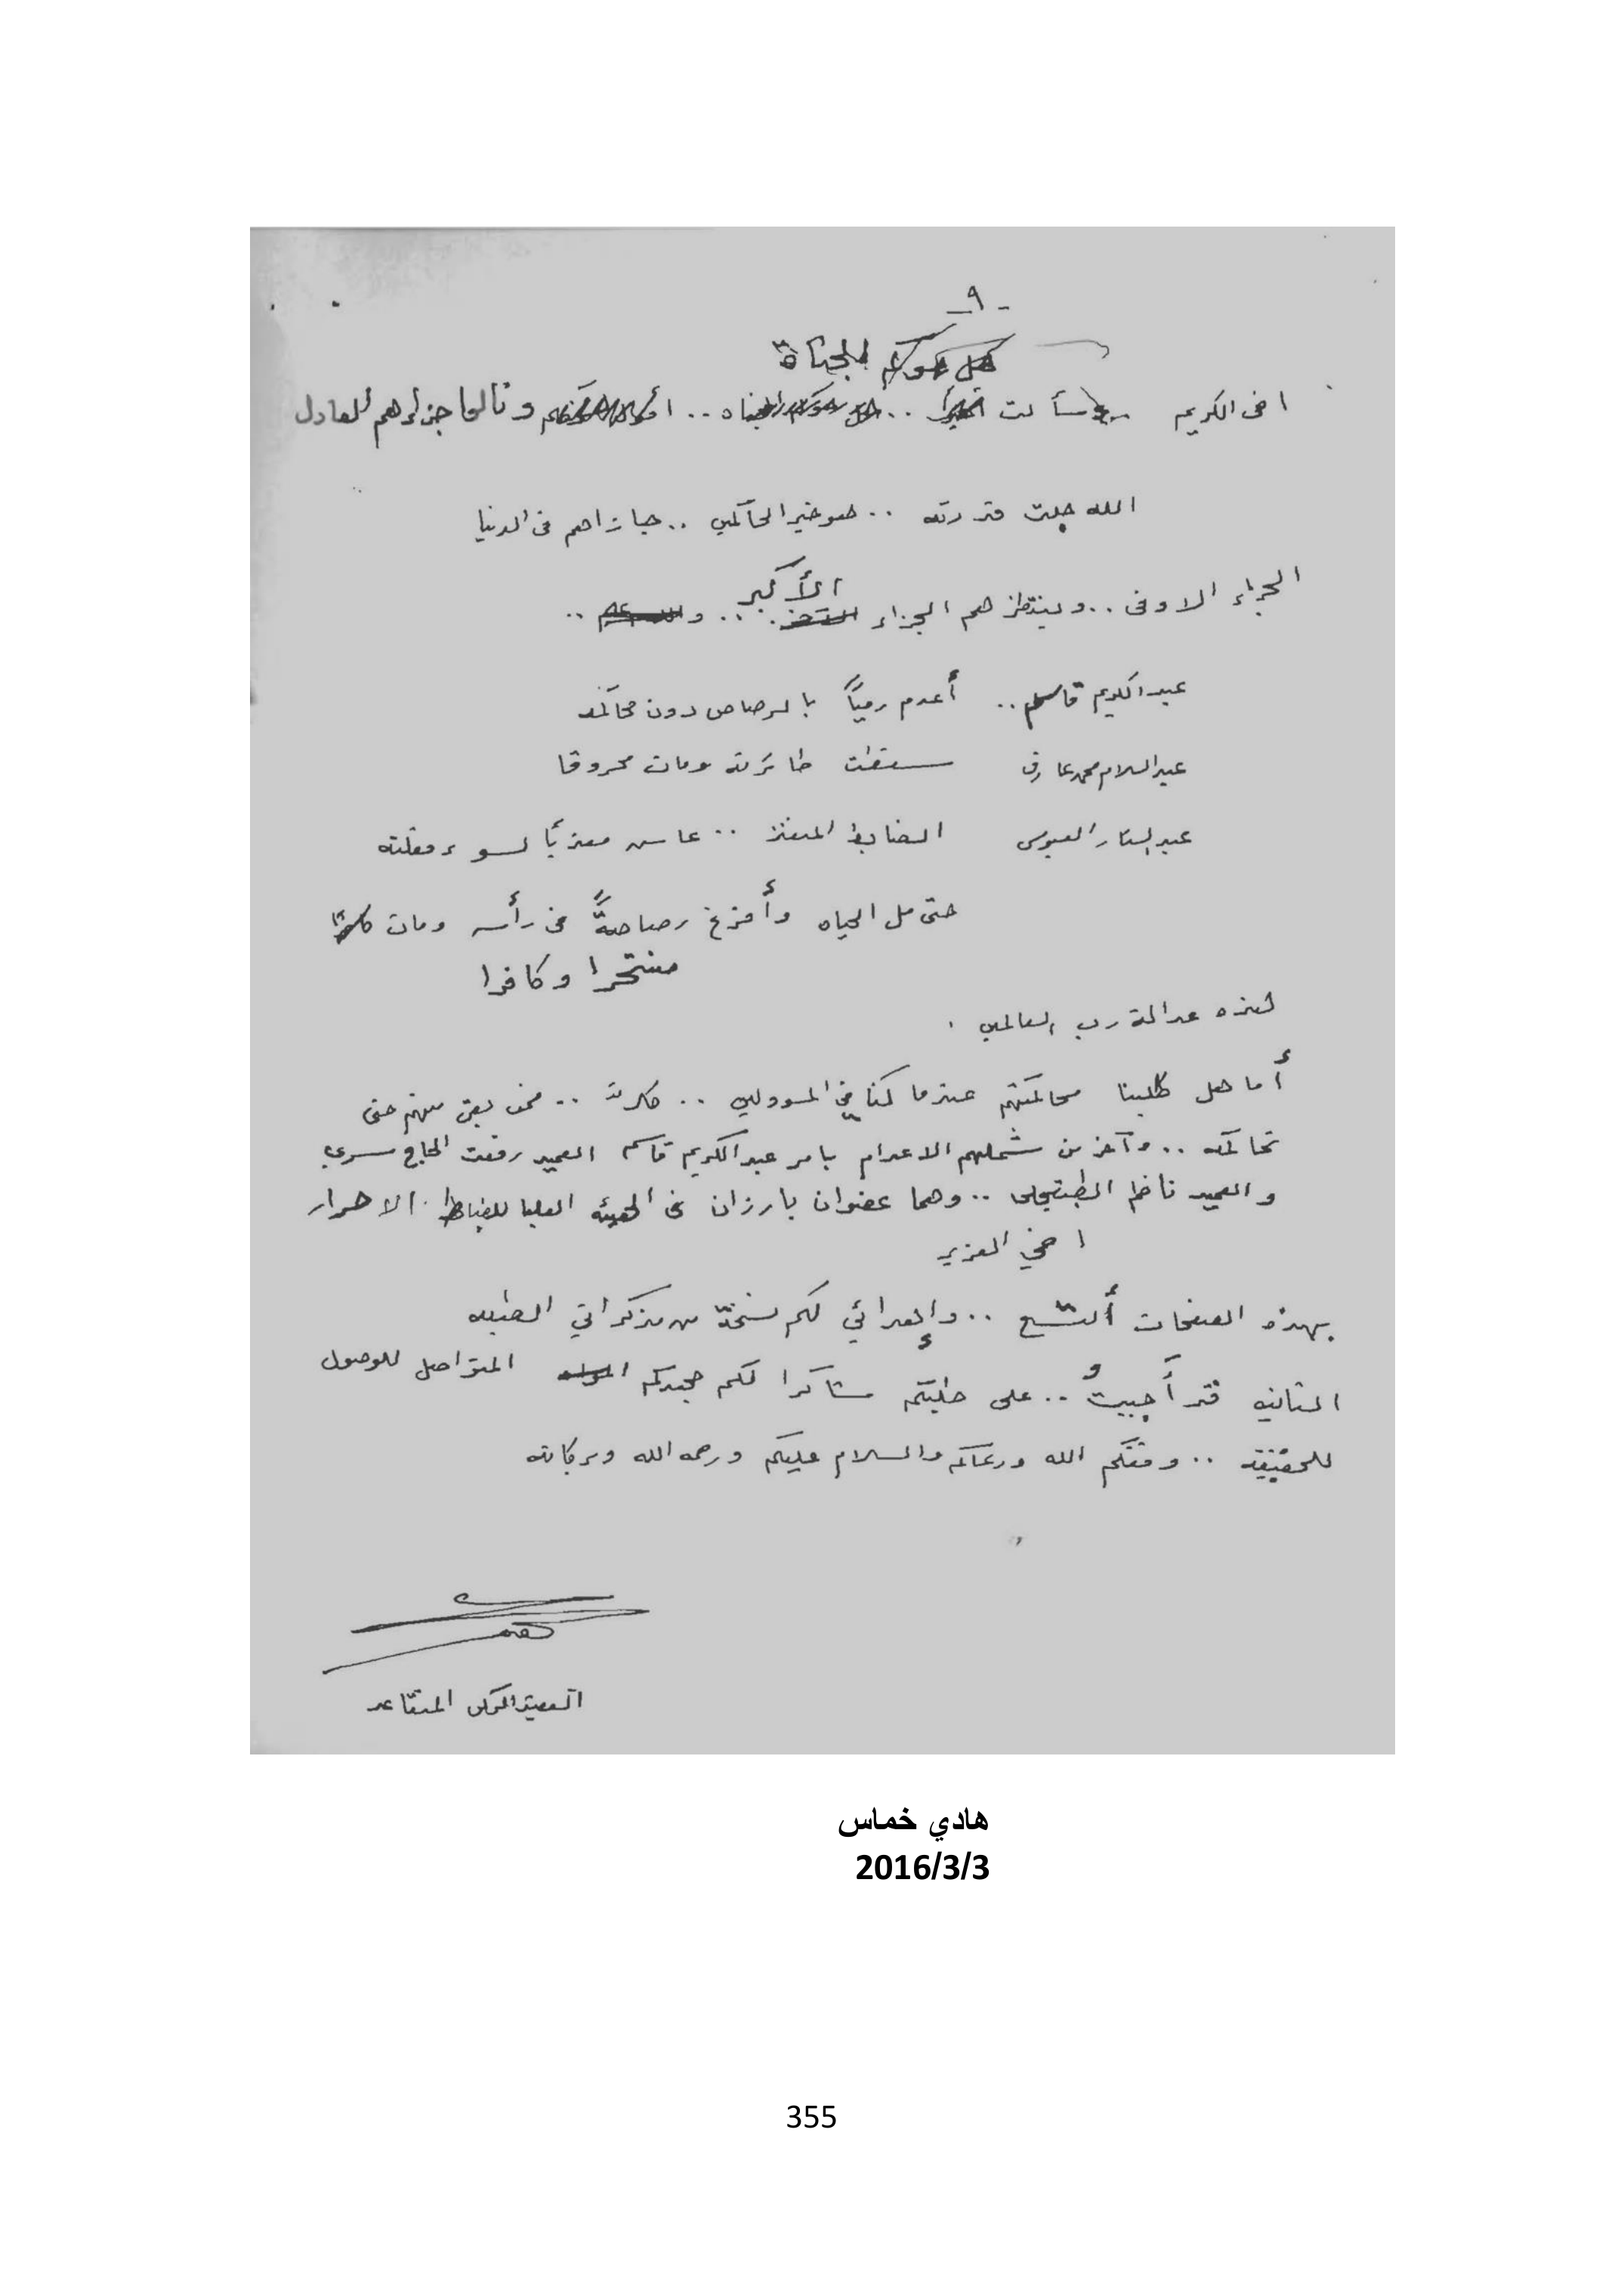 - ٩ -
هل حوكم الجناة
اخي الكريم .. سألت .. ونالوا جزاءهم العادل
الله جلت قدرته .. هو خير الحاكمين .. جازاهم في الدنيا
الأكبر
الجزاء الاوفى .. وينتظرهم الجزاء .. و ..
عبد الكريم قاسم .. أعدم رمياً بالرصاص دون محاكمة
عبد السلام محمد عارف سقطت طائرته ومات محروقا
عبد الستار العبوسي الضابط المنفذ .. عاش معذباً لسوء فعلته
حتى مل الحياه وأفرغ رصاصةً في رأسه ومات
منتحرا وكافرا
لهذه عدالة رب العالمين .
أما هل طلبنا محاكمتهم عندما كنا في المسؤولين .. فكرت .. فمن بقى منهم حتى
نحاكمه .. وآخر من شملهم الاعدام بامر عبد الكريم قاسم العميد رفعت الحاج سري
والعميد ناظم الطبقجلي .. وهما عضوان بارزان في الهيئه العليا للضباط الاحرار
اخي العزيز
بهذه الصفحات ألتسع .. وإهدائي لكم نسخة من مذكراتي الطبعه
الثانيه قد أجبتُ .. على طلبتكم شاكرا لكم جهدكم المتواصل للوصول
للحقيقة .. وفقكم الله ورعاكم والسلام عليكم ورحمه الله وبركاته
العميد الركن المتقاعد
هادي خماس
2016/3/3
355